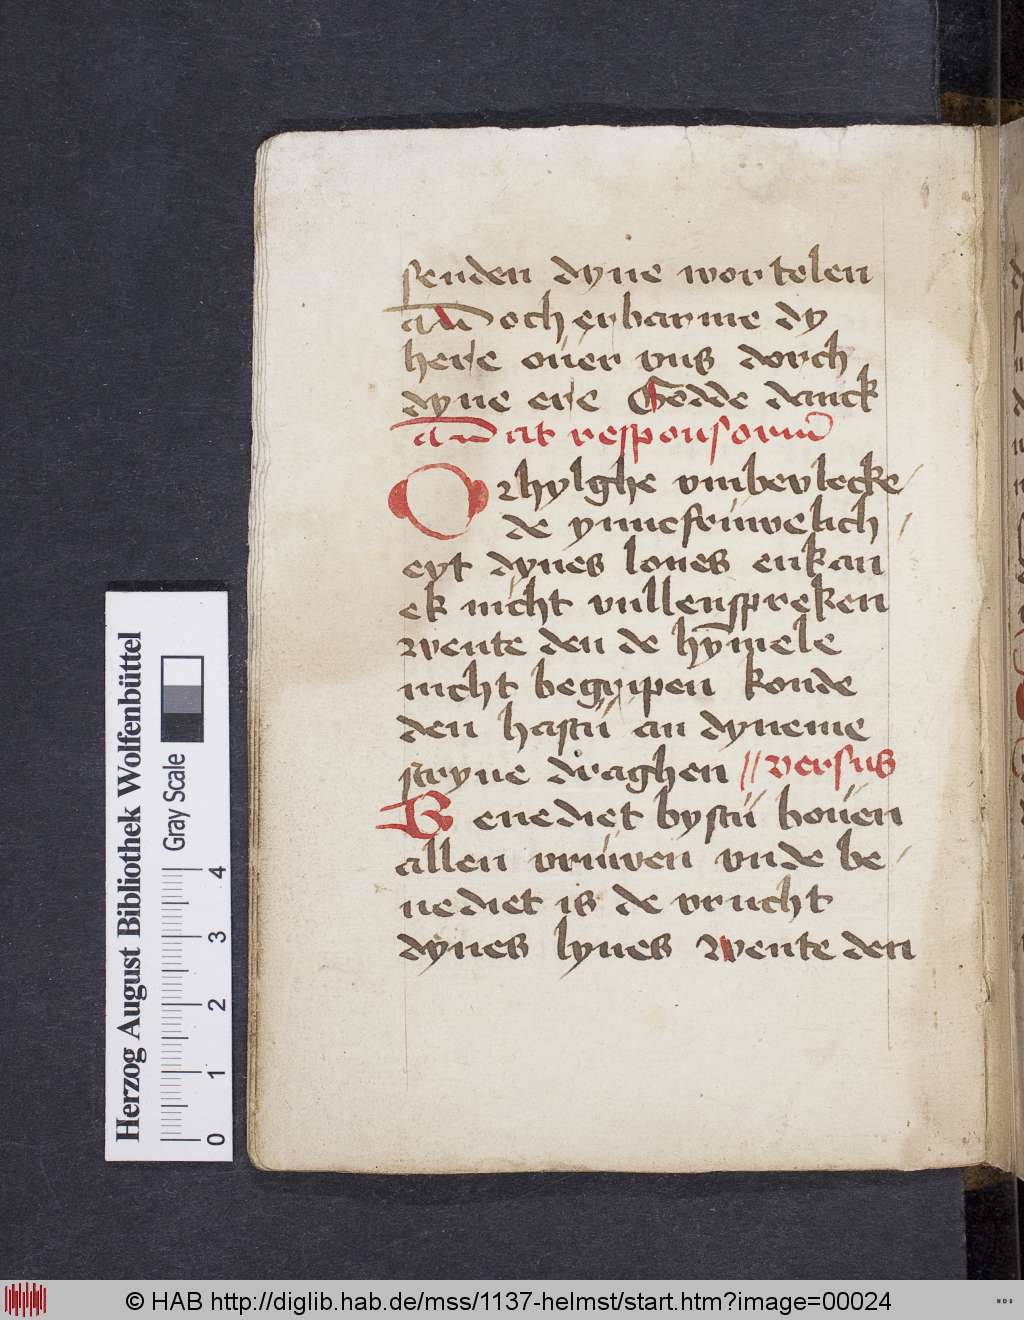 senden dyne wortelen
och erbarme dy
here ouer vns dorch
dyne ere Godde danck
responsoriu̅
O hylghe vnbevlecke
de yuncfruwelich
eyt dynes loues enkan
ek nicht vullenspreken
wente den de hymele
nicht begripen konde
den hastu an dyneme
draghen // versus
Benediet bystu bouen
allen vruwen vnde be
nediet is de vrucht
dynes lyues Wente den
Herzog August Bibliothek Wolfenbüttel
Gray Scale
0 1 2 3 4
© HAB http://diglib.hab.de/mss/1137-helmst/start.htm?image=00024